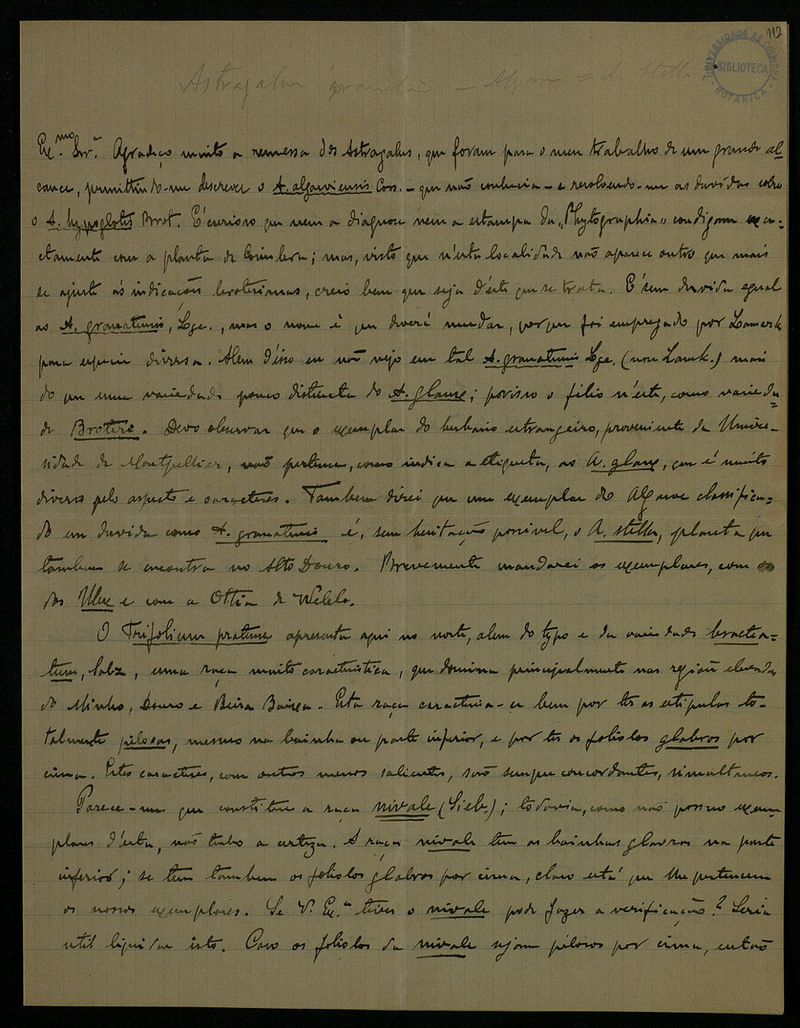 112
UNIVERSIDADE DE COIMBRA
BIBLIOTECA
BOTANICA
Astragalus granatensis – Algarve = A. Stella
Ex.mo Snr. Agradeço muito a remessa dos Astragalus, que foram para o meu trabalho de um grande al-
cance, permittindo-me descrever o A. algarviensis Cos. – que não conhecia – e resolvendo-me as duvidas sobre
o A. hypoglotis Brot. É curioso que nem a diagnose nem a estampa da "Phytographia" condigam exa-
ctamente com a planta de Coimbra; mas, visto que n'esta localidade não aparece outro que mais
se ajuste ás indicações broterianas, creio bem que seja d'este que se trata. É sem duvida egual
ao A. granatensis, Lge., mas o nome é que deverá mudar, porque foi empregado por Lamarck
para especie diversa. Alem d'isso eu não vejo em tal A. granatensis Lge. (non Lamk.) mais
do que uma variedade pouco distincta do A. glaux; por isso o filio n'este, como varieda-
de Brotero. Devo observar que o exemplar do herbario estrangeiro, proveniente da Univer-
sidade de Montpellier, não pertence, como indica a etiqueta, ao A. glaux, que é muito
diverso pelo aspecto e caracteres. Tambem direi que um exemplar do Algarve classifica-
do em duvida como A. granatensis é, sem hesitação possivel, o A. stella, planta que
tambem se encontra no Alto Douro. Brevemente mandarei os exemplares, com os
dos Ulex e com a de
O Trifolium pratense apresenta aqui no norte, alem do typo e da variedade bractea-
tum, uma raça muito caracteristica, que domina principalmente nas regiões elevadas
do Minho, Douro e Beira Baixa. Esta raça caracterisa-se bem por ter as estipulas to-
talmente pilosas, mesmo na bainha ou parte inferior, e por ter os foliolos glabros por
cima. Estes caracteres, com outros menos salientes, são sempre concordantes, simultaneos.
Parece-me que constitue a raça nivale (Sieb.); todavia, como não possuo exem-
plares d'esta, não tenho a certeza. A raça nivale tem as bainhas glabras na parte
inferior; se tem tambem os foliolos glabros por cima, claro está que lhe pertencem
os nossos exemplares. Se V. Ex.a tiver o nivale pode fazer a verificação? Seria
util liquidar isto. Caso os foliolos da nivale sejam pilosos por cima, então